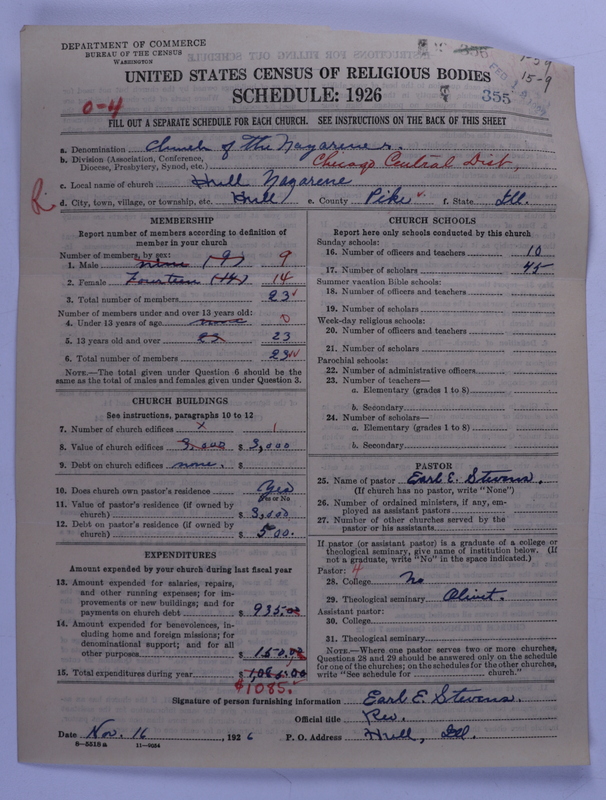 DEPARTMENT OF COMMERCE
BUREAU OF THE CENSUS
WASHINGTON
15-9
UNITED STATES CENSUS OF RELIGIOUS BODIES
SCHEDULE: 1926
355
0-4
FILL OUT A SEPARATE SCHEDULE FOR EACH CHURCH. SEE INSTRUCTIONS ON THE BACK OF THIS SHEET
a. Denomination Church of the Nazarene
b. Division (Association, Conference, Diocese, Presbytery, Synod, etc.) Chicago Central Dist,
c. Local name of church Hull Nazarene
d. City, town, village, or township, etc. Hull e. County Pike f. State Ill.
MEMBERSHIP
Report number of members according to definition of
member in your church
Number of members, by sex:
1. Male nine (9) 9
2. Female Fourteen (14) 14
3. Total number of members 23
Number of members under and over 13 years old:
4. Under 13 years of age none 0
5. 13 years old and over 23
6. Total number of members 23
NOTE.—The total given under Question 6 should be
same as the total of males and females given under Question 3.
CHURCH BUILDINGS
See instructions, paragraphs 10 to 12
7. Number of church edifices 1
8. Value of church edifices 3,000 $ 3,000
9. Debt on church edifices none. $
10. Does church own pastor's residence Yes
Yes or No
11. Value of pastor's residence (if owned by
church) $ 3,000
12. Debt on pastor's residence (if owned by
church) $ 500.
EXPENDITURES
Amount expended by your church during last fiscal year
13. Amount expended for salaries, repairs,
and other running expenses; for im-
provements or new buildings; and for
payments on church debt $ 935.00
14. Amount expended for benevolences, in-
cluding home and foreign missions; for
denominational support; and for all
other purposes $ 150.00
15. Total expenditures during year $ 1,085.00
$1085.
CHURCH SCHOOLS
Report here only schools conducted by this church
Sunday schools:
16. Number of officers and teachers 10
17. Number of scholars 45
Summer vacation Bible schools:
18. Number of officers and teachers
19. Number of scholars
Week-day religious schools:
20. Number of officers and teachers
21. Number of scholars
Parochial schools:
22. Number of administrative officers
23. Number of teachers—
a. Elementary (grades 1 to 8)
b. Secondary
24. Number of scholars—
a. Elementary (grades 1 to 8)
b. Secondary
PASTOR
25. Name of pastor Earl E. Stevens.
(If church has no pastor, write "None")
26. Number of ordained ministers, if any, em-
ployed as assistant pastors
27. Number of other churches served by the
pastor or his assistants
If pastor (or assistant pastor) is a graduate of a college or
theological seminary, give name of institution below. (If
not a graduate, write "No" in the space indicated.)
Pastor: 4
28. College No
29. Theological seminary Olivet.
Assistant pastor:
30. College
31. Theological seminary
NOTE.—Where one pastor serves two or more churches,
Questions 28 and 29 should be answered only on the schedule
for one of the churches; on the schedules for the other churches,
write "See schedule for church."
Signature of person furnishing information Earl E. Stevens.
Official title Rev.
Date Nov. 16, 1926 P. O. Address Hull, Ill.
8-5518a 11-9054